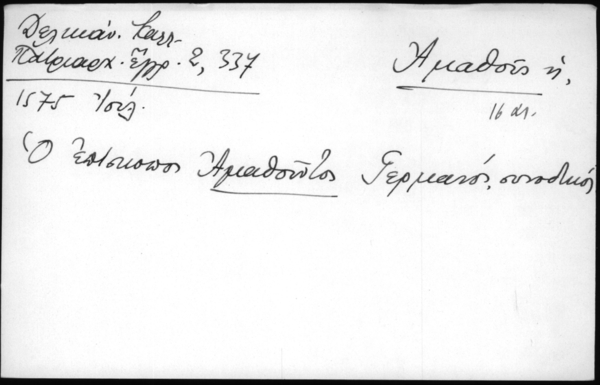 Δελικάν. Καλλ.
Πατριαρχ. Ἔγγρ. 2, 337
Ἀμαθοῦς ἡ,
1575 Ἰούλ.
16 αἰ.
Ὁ Ἐπίσκοπος Ἀμαθοῦντος Γερμανός, συνοδικός